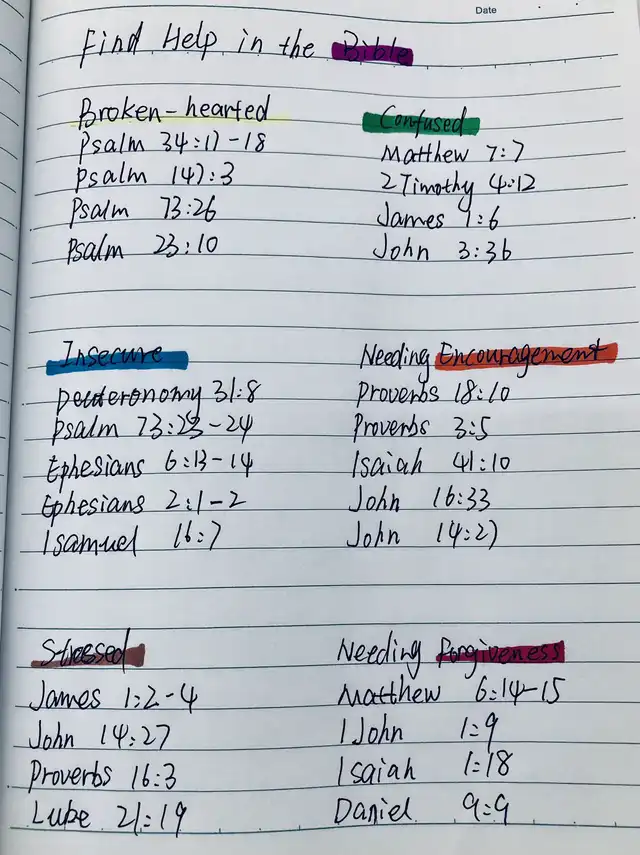 Date
Find Help in the Bible
Broken-hearted
Psalm 34:17-18
Psalm 147:3
Psalm 73:26
Psalm 23:10
Confused
Matthew 7:7
2 Timothy 4:12
James 1:6
John 3:36
Insecure
Deuteronomy 31:8
Psalm 73:23-24
Ephesians 6:13-14
Ephesians 2:1-2
1 Samuel 16:7
Needing Encouragement
Proverbs 18:10
Proverbs 3:5
Isaiah 41:10
John 16:33
John 14:27
Stressed
James 1:2-4
John 14:27
Proverbs 16:3
Luke 21:19
Needing Forgiveness
Matthew 6:14-15
1 John 1:9
Isaiah 1:18
Daniel 9:9